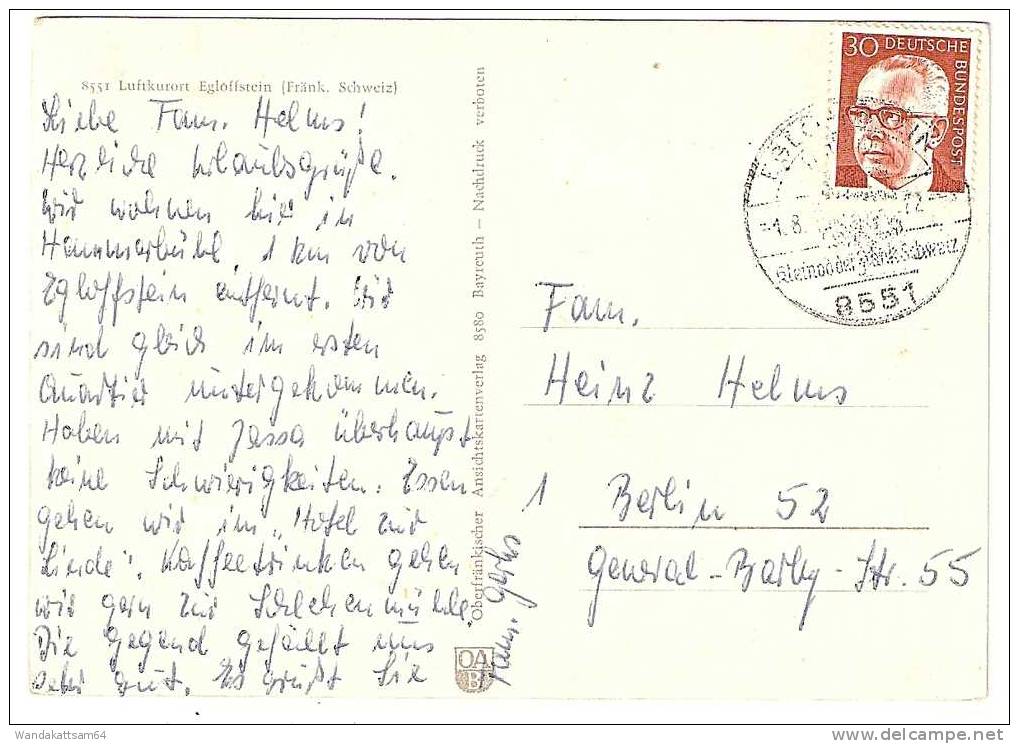 8551 Luftkurort Egloffstein (Fränk. Schweiz)
Liebe Fam. Helms!
Herzliche Urlaubsgrüße.
Wir wohnen hier in
Hammerbühl, 1 km von
Egloffstein entfernt. Wir
sind gleich im ersten
Quartier untergekommen.
Haben mit Jassa überhaupt
keine Schwierigkeiten. Essen
gehen wir im "Hotel zur
Linde". Kaffeetrinken gehen
wir gern zur Schlehenmühle.
Die Gegend gefällt uns
sehr gut. Es grüßt Sie
Fam.
Oberfränkischer Ansichtskartenverlag 8580 Bayreuth — Nachdruck verboten
OA
B
30 DEUTSCHE
BUNDESPOST
1.8. 72
Kleinod der Fränk. Schweiz
8551
Fam.
Heinz Helms
1 Berlin 52
General-Barby-Str. 55
Wandakattsam64
delcampe.net